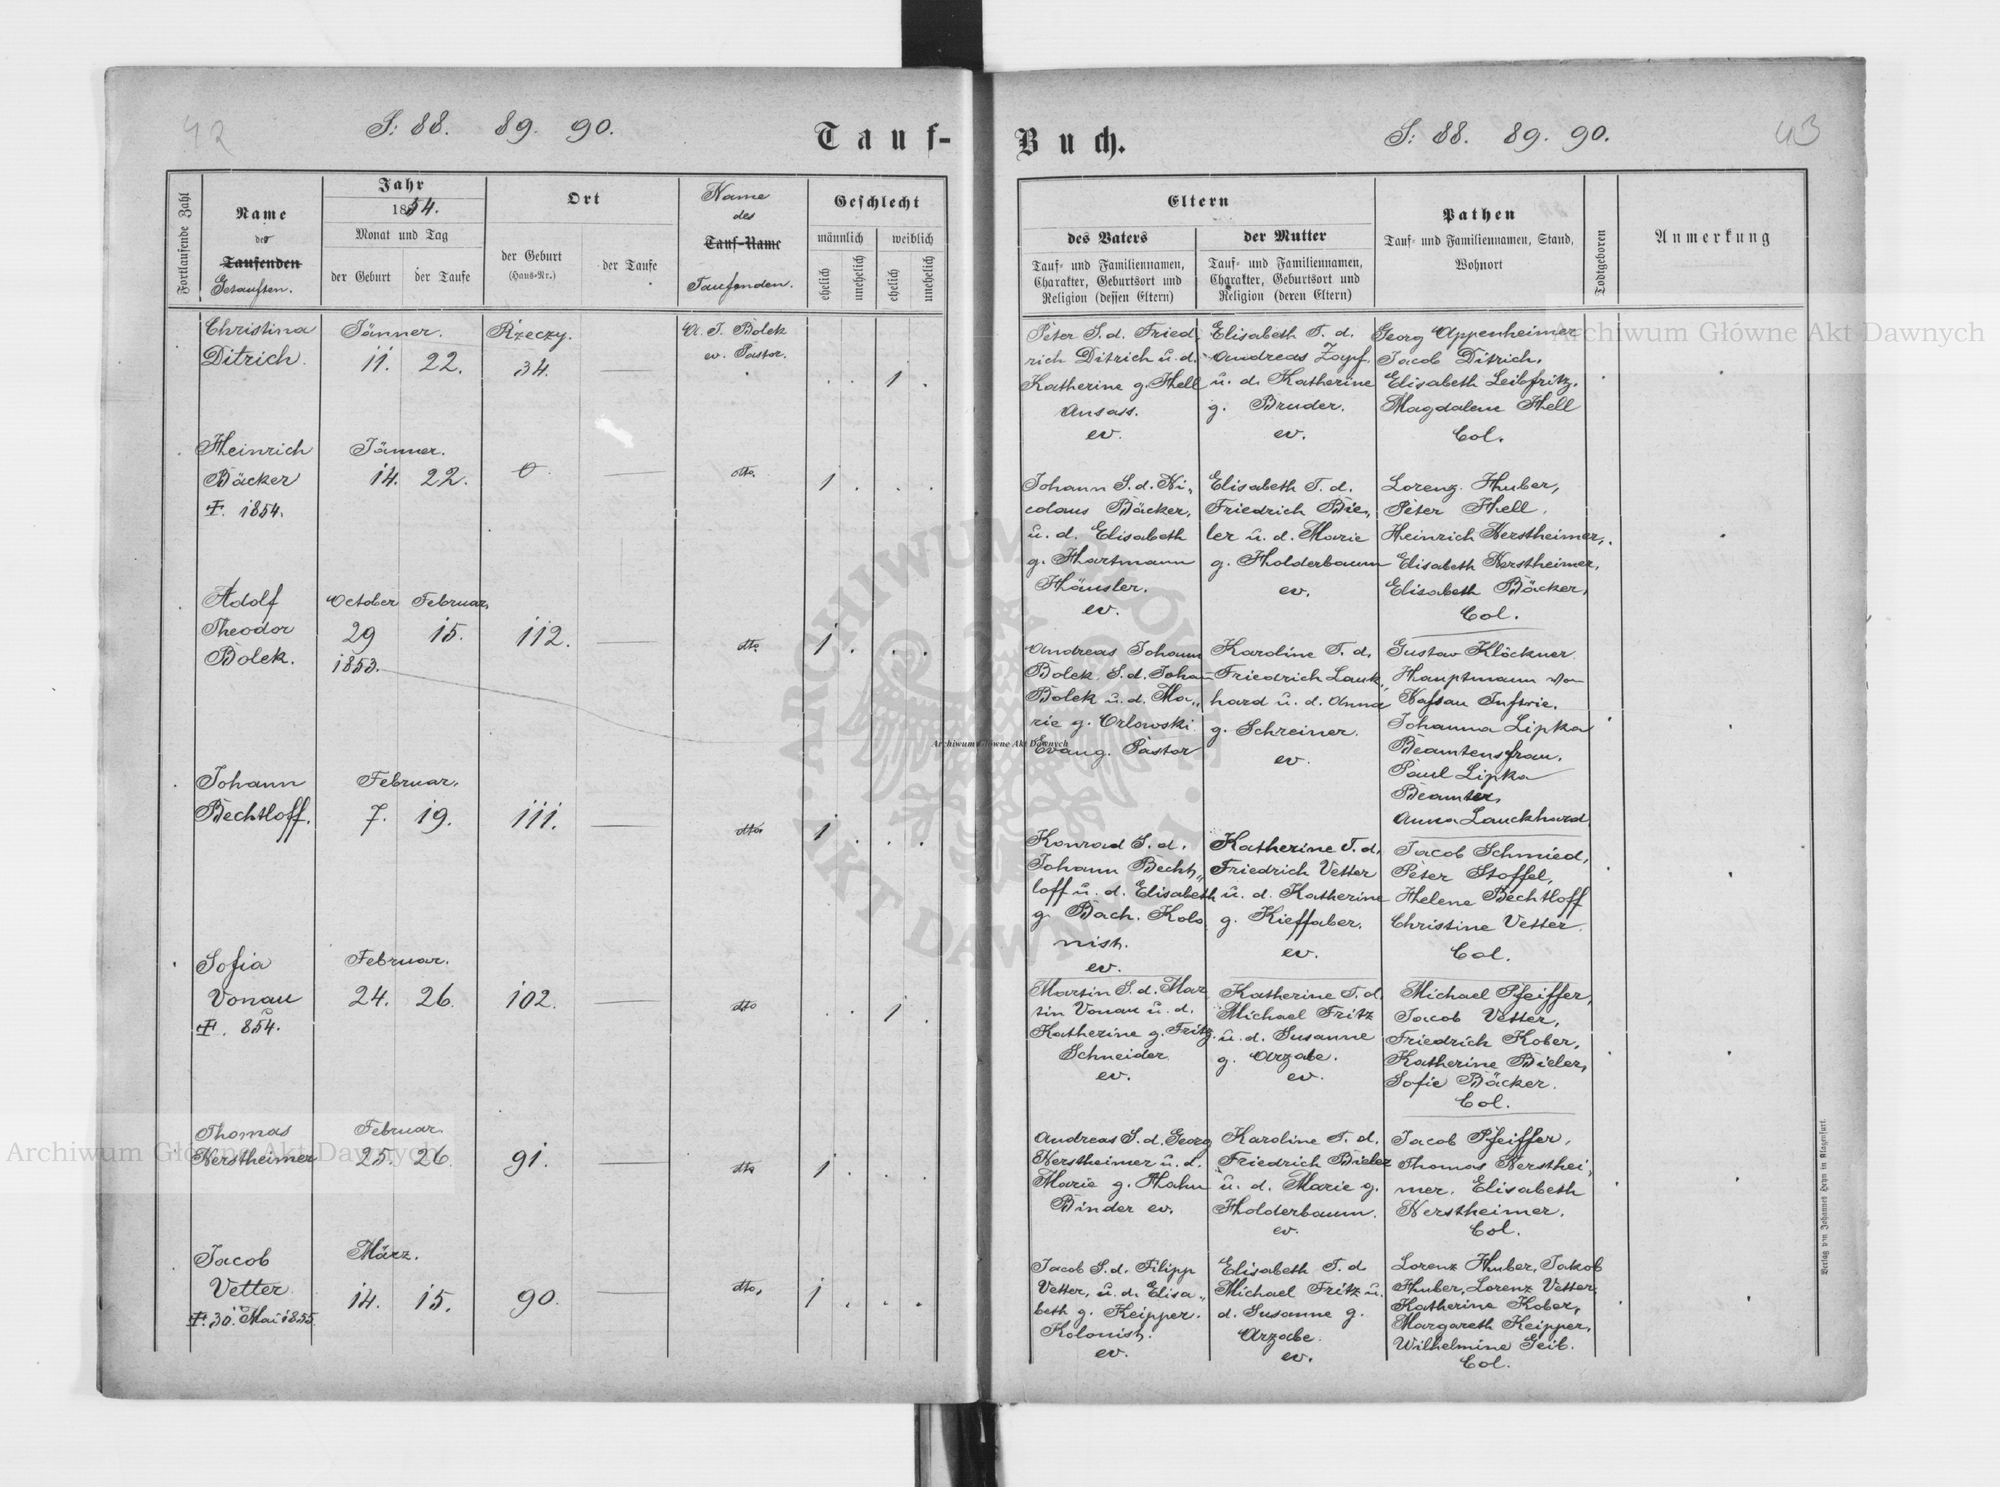 42
S: 88. 89. 90.
Tauf-
Fortlaufende Zahl
Name
des
Taufenden
Getauften.
Jahr
1854.
Monat und Tag
der Geburt
der Taufe
Ort
der Geburt
(Haus-Nr.)
der Taufe
Name
des
Tauf-Name
Taufenden.
Geschlecht
männlich
weiblich
ehelich
unehelich
ehelich
unehelich
Christina
Ditrich.
Jänner.
11. 22.
Rzeczy.
34.
A. J. Bolek
ev. Pastor.
1
Heinrich
Bäcker
†. 1854.
Jänner.
14. 22.
0.
dto.
1
Adolf
Theodor
Bolek.
October Februar,
29 15.
1853.
112.
dto.
1
Johann
Bechtloff.
Februar.
7. 19.
111.
dto.
1
Sofia
Vonau
†. 854.
Februar.
24. 26.
102.
dto
1
Thomas
Kerstheimer
Februar.
25. 26.
91.
dto
1
Jacob
Vetter
†. 30. Mai 1855.
März.
14. 15.
90.
dto.
1
Buch.
S: 88. 89. 90.
43
Eltern
des Vaters
Tauf- und Familiennamen,
Charakter, Geburtsort und
Religion (dessen Eltern)
der Mutter
Tauf- und Familiennamen,
Charakter, Geburtsort und
Religion (deren Eltern)
Pathen
Tauf- und Familiennamen, Stand,
Wohnort
Todtgeboren
Anmerkung
Peter S. d. Fried,
rich Ditrich u. d.
Katherine g. Hell
Ansass.
ev.
Elisabeth T. d.
Andreas Zopf.
u. d. Katherine
g. Bruder.
ev.
Georg Appenheimer
Jacob Ditrich,
Elisabeth Leibfritz.
Magdalene Hell
Col.
Johann S. d. Ni,
colaus Bäcker,
u. d. Elisabeth
g. Hartmann
Häusler.
ev.
Elisabeth T. d.
Friedrich Bie,
ler u. d. Marie
g. Holderbaum
ev.
Lorenz Huber,
Peter Hell,
Heinrich Kerstheimer,
Elisabeth Kerstheimer,
Elisabeth Bäcker,
Col.
Andreas Johann
Bolek S. d. Johan
Bolek u. d. Ma,,
rie g. Orlowski
Evang. Pastor
Karoline T. d.
Friedrich Lauk,
hard u. d. Anna
g. Schreiner.
ev.
Gustav Klöckner
Hauptmann von
Nassau Inftrie.
Johanna Lipka
Beamtensfrau.
Paul Lipka
Beamter,
Anna Lauckhard
Konrad S. d.
Johann Becht,,
loff u. d. Elisabeth
g. Bach. Kolo
nist.
ev.
Katherine T. d.
Friedrich Vetter
u. d. Katherine
g. Kieffaber.
ev.
Jacob Schmied,
Peter Stoffel,
Helene Bechtloff
Christine Vetter.
Col.
Martin S. d. Mar
tin Vonau u. d.
Katherine g. Fritz.
Schneider
ev.
Katherine T. d.
Michael Fritz
u. d. Susanne
g. Arzabe.
ev.
Michael Pfeiffer,
Jacob Vetter,
Friedrich Kober,
Katherine Bieler,
Sofie Bäcker.
Col.
Andreas S. d. Georg
Kerstheimer u. d.
Marie g. Hahn
Binder ev.
Karoline T. d.
Friedrich Bieler
u. d. Marie g.
Holderbaum.
ev.
Jacob Pfeiffer,
Thomas Kersthei,
mer. Elisabeth
Kerstheimer.
Col.
Jacob S. d. Filipp
Vetter, u. d. Elisa,,
beth g. Keipper.
Kolonist.
ev.
Elisabeth T. d
Michael Fritz u.
d. Susanne g.
Arzabe.
ev.
Lorenz Huber, Jakob
Huber, Lorenz Vetter,
Katherine Kober,
Margareth Keipper,
Wilhelmine Geib.
Col.
Verlag von Johannes Heyn in Klagenfurt.
Archiwum Główne Akt Dawnych
Archiwum Główne Akt Dawnych
Archiwum Główne Akt Dawnych